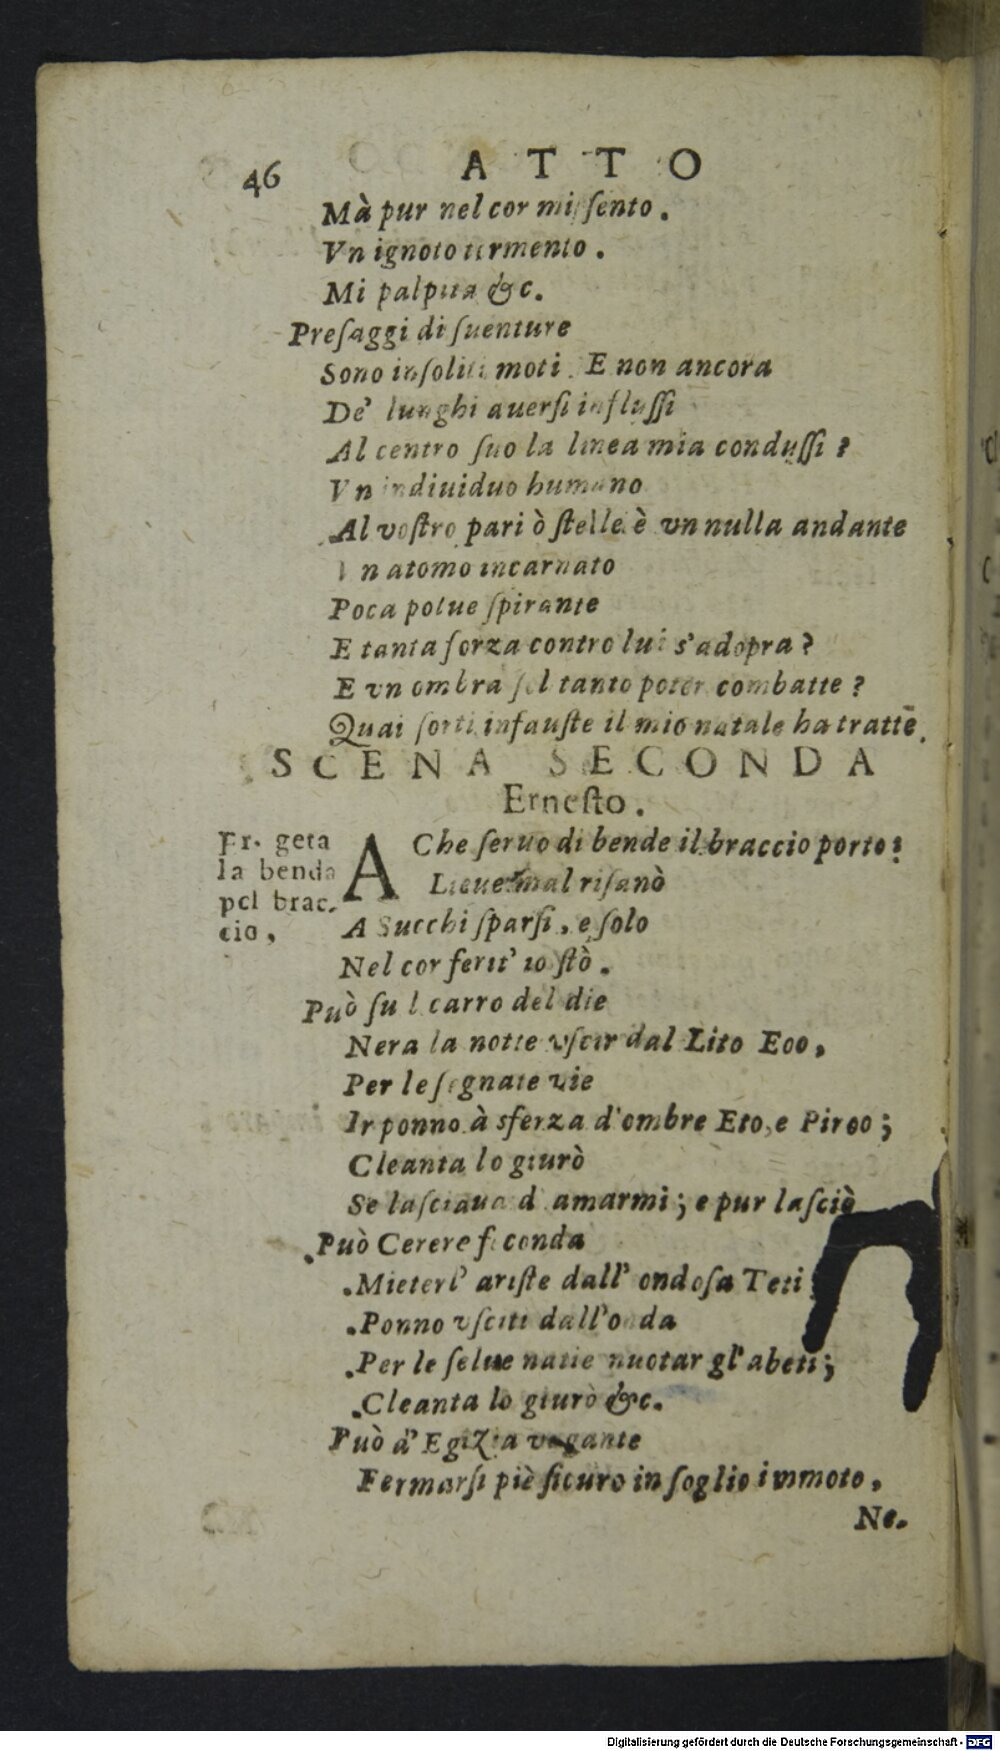 46 ATTO
Mà pur nel cor mi ſento.
Vn ignoto tormento.
Mi palpita &c.
Preſaggi di ſuenture
Sono inſoliti moti. E non ancora
De' lunghi auerſi influſſi
Al centro ſuo la linea mia conduſſi?
Vn indiuiduo humano
Al voſtro pari ò ſtelle è vn nulla andante
Vn atomo incarnato
Poca polue ſpirante
E tanta forza contro lui s'adopra?
E vn ombra ſol tanto poter combatte?
Quai ſorti infauſte il mio natale ha tratte.
SCENA SECONDA
Erneſto.
Er. geta
la benda
pel brac-
cio,
A Che ſeruo di bende il braccio porto?
Lieue mal riſanò
A Succhi ſparſi, e ſolo
Nel cor ferit' io ſtò.
Può ſu l carro del die
Nera la notte vſcir dal Lito Eoo,
Per le ſegnate vie
Ir ponno à sferza d'ombre Eto, e Piroo;
Cleanta lo giurò
Se laſciaua d amarmi; e pur laſciò
Può Cerere feconda
Mieter l' ariſte dall' ondoſa Teti
Ponno vſciti dall'onda
Per le ſelue natie nuotar gl' abeti;
Cleanta lo giurò &c.
Può d' Egizia vagante
Fermarſi piè ſicuro in ſoglio immoto,
Ne.
Digitalisierung gefördert durch die Deutsche Forschungsgemeinschaft - DFG